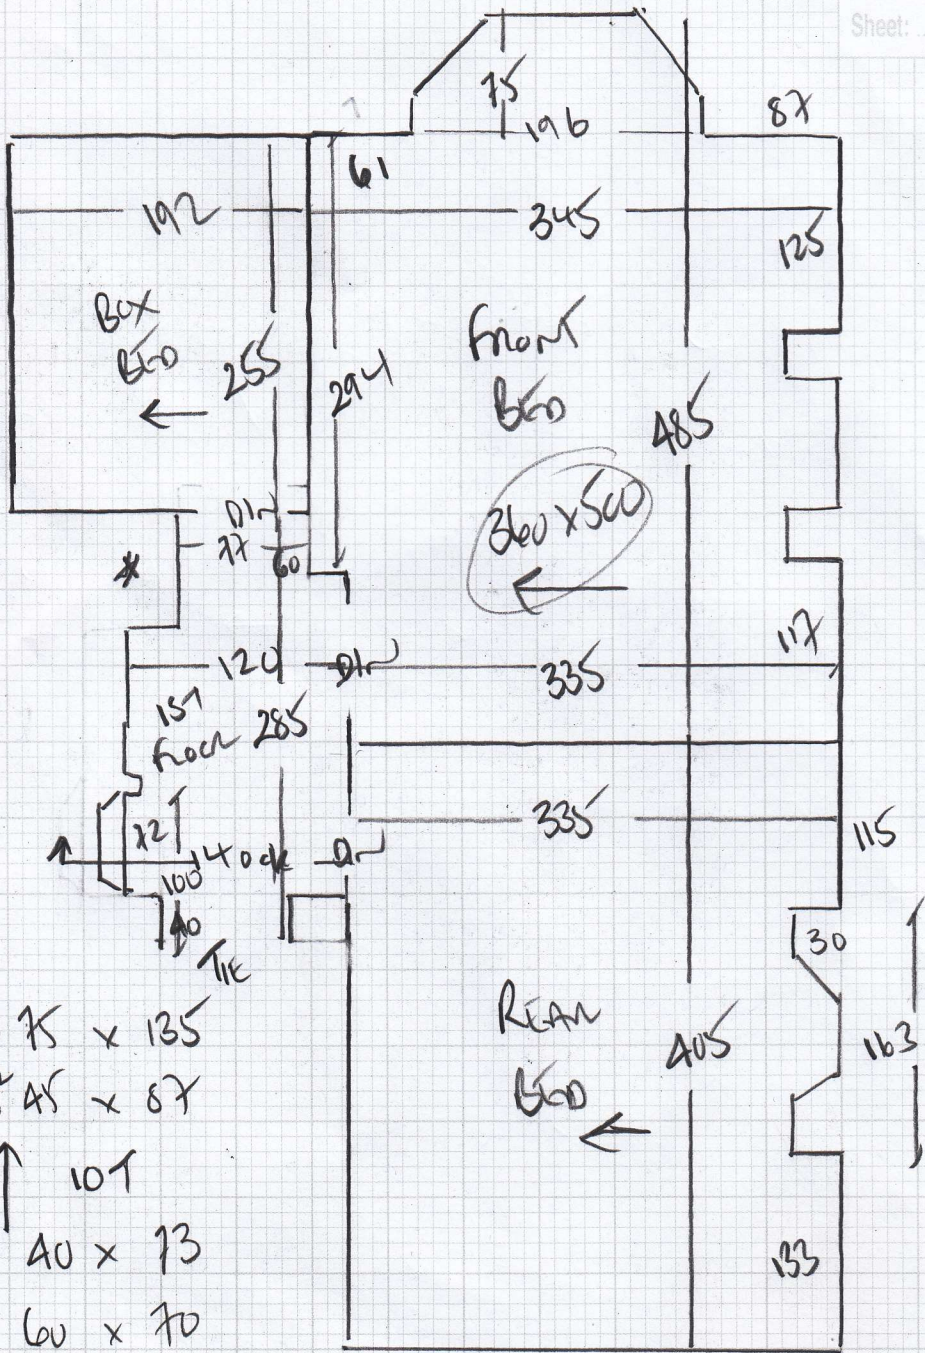 Sheet:
75
196
87
61
192
345
125
BOX
BED
255
294
FRONT
BED
485
360 x 500
D/W
77
60
*
120
D/W
335
117
1ST
FLOOR
285
335
115
72
140
D/W
100
40
TIE
30
REAR
BED
405
163
133
75 x 135
45 x 87
10T
40 x 73
60 x 70